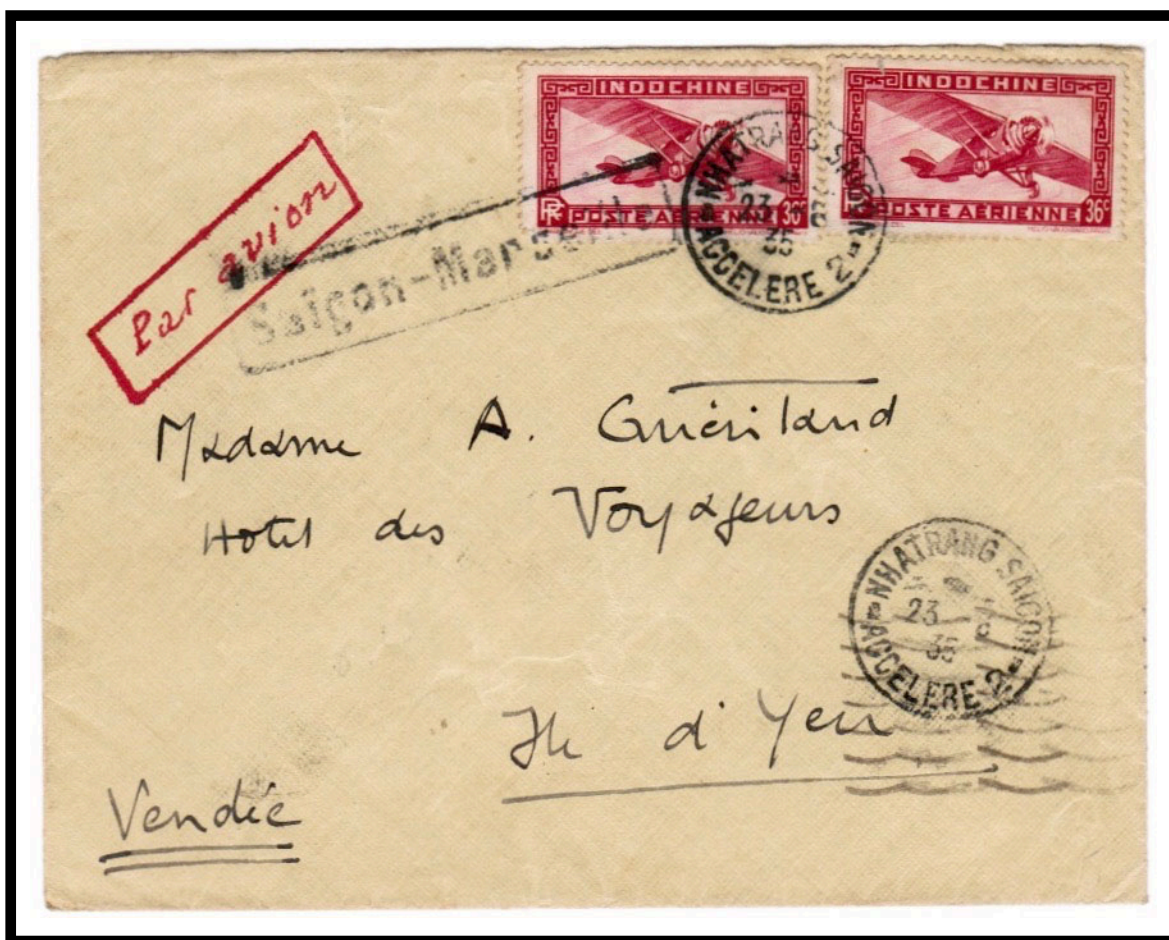 INDOCHINE
RF POSTE AERIENNE 36c
INDOCHINE
RF POSTE AERIENNE 36c
NHATRANG SAIGON
23
35
ACCELERE 2
Par avion
Saigon-Marseille
Madame A.
Hotel des Voyageurs
NHATRANG SAIGON
23
35
ACCELERE 2
Ile d'Yeu
Vendée